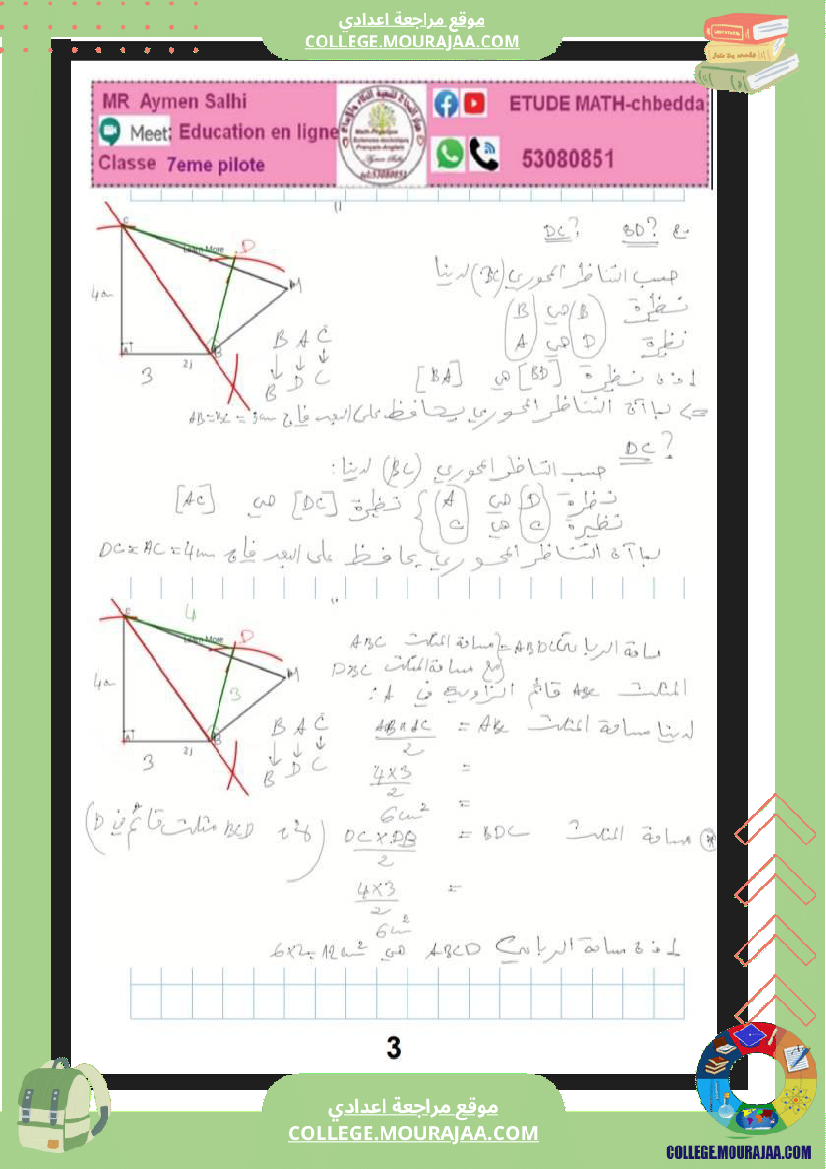 موقع مراجعة اعدادي
COLLEGE.MOURAJAA.COM
MR Aymen Salhi
Meet: Education en ligne
Classe 7eme pilote
ETUDE MATH-chbedda
53080851
DC? BD? مع
حسب التناظر المحوري (BC) لدينا
نظيرة B هي B
نظيرة D هي A
إذن نظيرة [BD] هي [BA]
=> بما أن التناظر المحوري يحافظ على البعد فإن
C
Learn More
D
M
4cm
A
3
B A C
↓ ↓ ↓
B D C
DC?
حسب التناظر المحوري (BC) لدينا:
نظيرة D هي A
نظيرة C هي C
نظيرة [DC] هي [AC]
بما أن التناظر المحوري يحافظ على البعد فإن DC = AC = 4cm
C
4
Learn More
D
M
3
A
3
B A C
↓ ↓ ↓
B D C
مساحة الرباعي ABDC = مساحة المثلث ABC
مع مساحة المثلث DBC
المثلث ABC قائم الزاوية في A:
لدينا مساحة المثلث ABC = AB×AC / 2
= 4×3 / 2
= 6cm²
مساحة المثلث BDC = DC×DB / 2
(BCD مثلث قائم في D)
= 4×3 / 2
6cm²
إذن مساحة الرباعي ABCD هي 6×2=12cm²
3
موقع مراجعة اعدادي
COLLEGE.MOURAJAA.COM
COLLEGE.MOURAJAA.COM